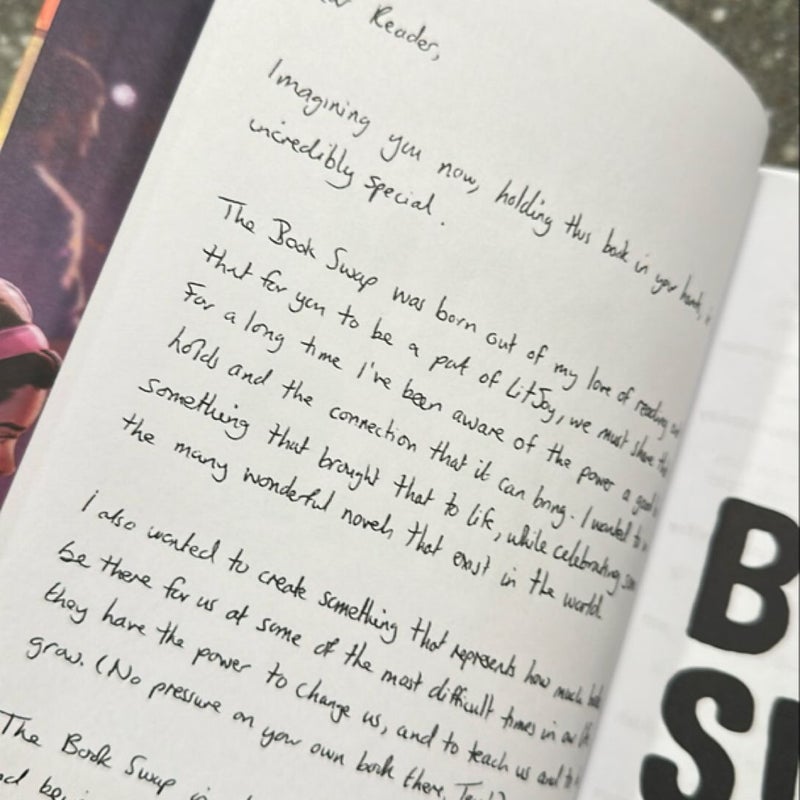 Reader,
Imagining you now, holding this book in your hands,
incredibly special.
The Book Swap was born out of my love of reading
that for you to be a part of LitJoy, we must share
For a long time I've been aware of the power a good
holds and the connection that it can bring. I wanted to
something that brought that to life, while celebrating
the many wonderful novels that exist in the world.
I also wanted to create something that represents how much
be there for us at some of the most difficult times in our
they have the power to change us, and to teach us and to
grow. (No pressure on your own book there,
The Book Swap is
B
S